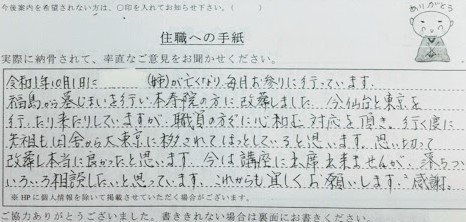 今後案内を希望されない方は、○印を入れてお知らせ下さい。(　　)
ありがとう
住職への手紙
実際に納骨されて、率直なご意見をお聞かせください。
令和1年10月1日に　　　(姉)が亡くなり毎月お参りに行っています。
福島から墓じまいを行い本寿院の方に改葬しました。今仙台と東京を
行ったり来たりしていますが、職員の方々に心和む対応を頂き。行く度に
先祖も田舎から大東京に移されてほっとしていると思います。思い切って
改葬本当に良かったと思います。今は講座に出席出来ませんが、落ちついて
いろいろ相談したいと思っています。これからも宜しくお願いします。感謝。
※HPに個人情報を除いて掲載させていただく場合がございます。
ご協力ありがとうございました。書ききれない場合は裏面にお書きください。